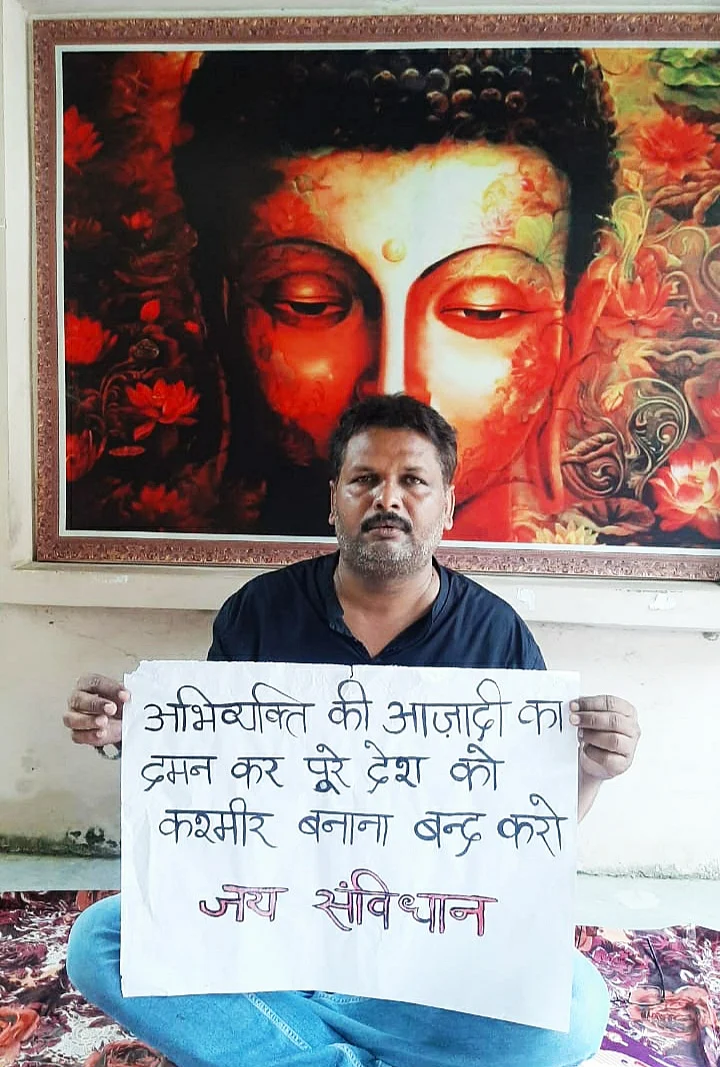 अभिव्यक्ति की आज़ादी का
दमन कर पूरे देश को
कश्मीर बनाना बन्द करो
जय संविधान